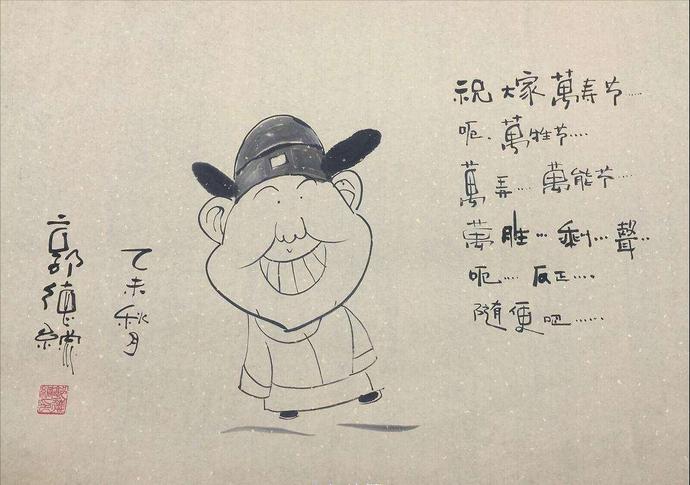 祝大家萬寿节……
呃、萬牲节……
萬弄…萬能节……
萬胜…剩…聲…
呃…反正……
隨便吧……
乙未秋月
郭德綱